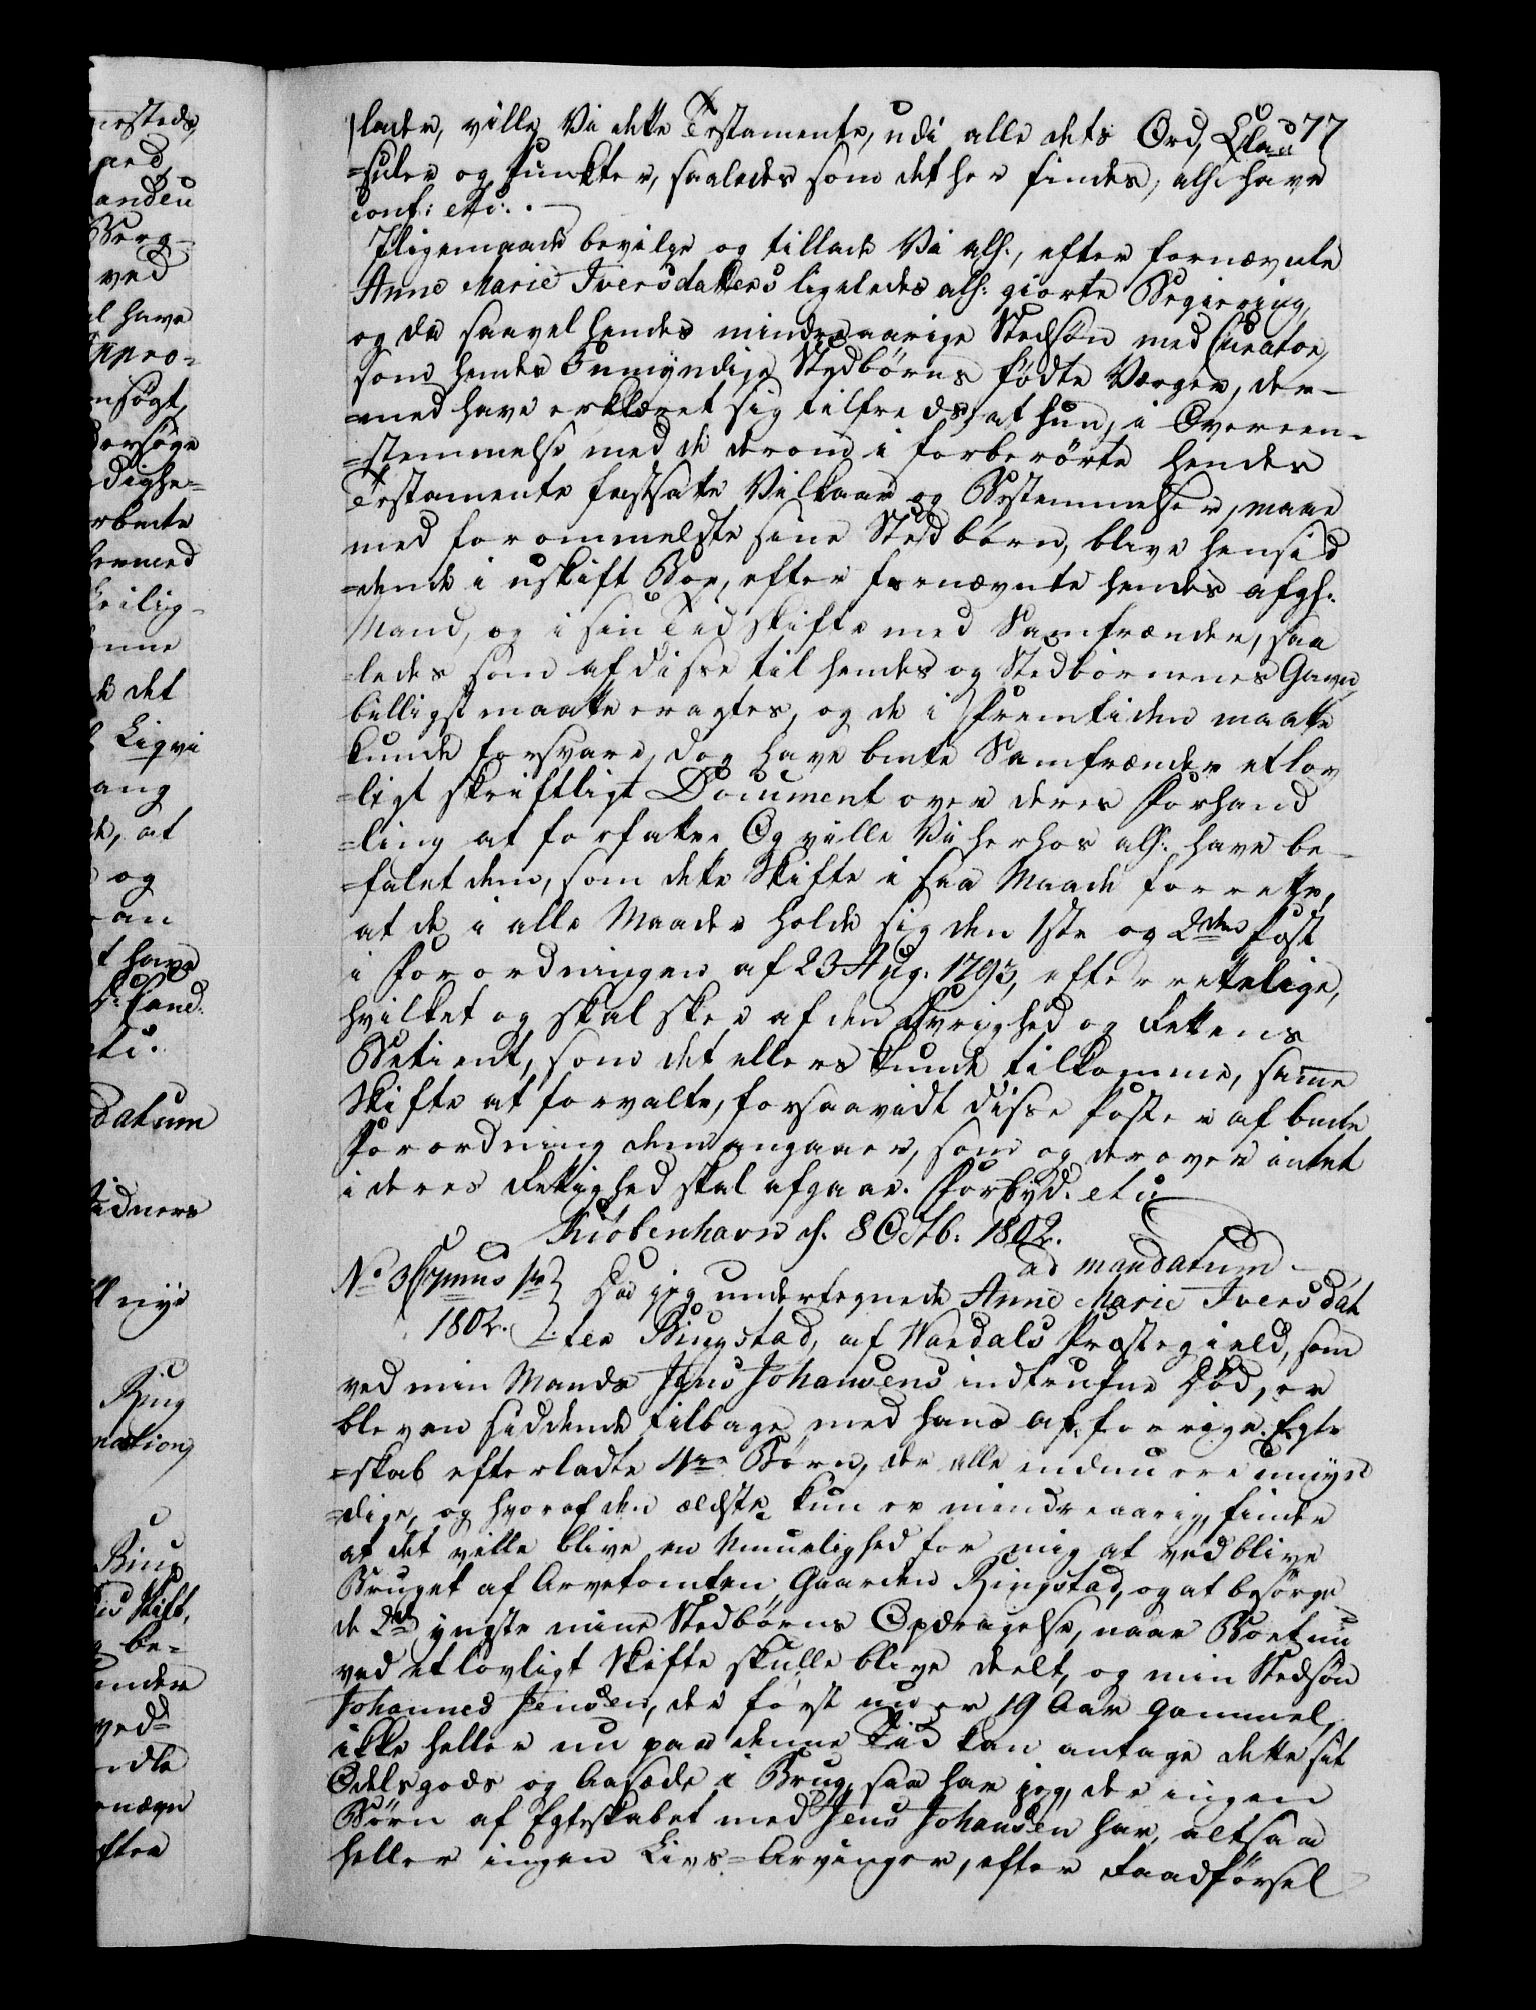 77
lader, ville Vi dette Testamente, udi alle dets Ord, Clau
=suler og Puncter, saaledes som det her findes, alh. have
conf: etc:.
Iligemaade bevilge og tillade Vi alh., efter fornævnte
Anne Marie Iversdatters ligeledes alh: giorte Begiering,
og da saavel hendes mindreaarige Stedsøn med Curator,
som hendes Ṳmyndige Stedbørns fødte Værger, der-
=med have erklæret sig tilfreds, at hun, i Overeen-
=stemmelse med de derom i forberørte hendes
Testamente fastsatte Vilkaar og Bestemmelser, maae
med forommeldte sine Stedbørn, blive hensid
=dende i uskift Boe, efter fornævnte hendes afgh:
Mand, og i sin Tid skifte med Samfrænder, saa
=ledes som af disse til hendes og Stedbørnenes Gavn,
billigst maatte eragtes, og de i Fremtiden maatte
kunde forsvare, dog have bmte Samfrænder et lov
=ligt skriftligt Document over deres Forhand
=ling at forfatte. Og ville Vi herhos alh: have be-
=falet dem, som dette Skifte i saa Maade forrette,
at de i alle Maader holde sig den 1ste og 2den Post
i Forordningen af 23 Aug. 1793, efterrettelige,
hvilket og skal skee af den Øvrighed og Rettens
Betient, som det ellers kunde tilkomme, samme
Skifte at forvalte, forsaavidt disse Poster af bmte
Forordning dem angaaer, som og derover intet
i deres Rettighed skal afgaae. Forbyd. etc:
Kiöbenhavn d. 8 Octb: 1802.
ad mandatum
No 3 1802. Da jeg undertegnede Anne Marie Iversdat
=ter Ringstad, af Vardals Præstegield, som
ved min Mands Jens Johansens indtrufne Død, er
bleven siddende tilbage med hans af forrige Egte
=skab efterladte 4re Børn, der alle endnu ere umyn
=dige, og hvoraf den ældste kun er mindreaarig, finder
at det ville blive en Umuelighed for mig at vedblive
Bruget af Arvetomten Gaarden Ringstad, og at besørge
de 2de yngste mine Stedbørns Opdragelse, naar Boet nu
ved et lovligt Skifte skulle blive deelt, og min Stedsøn
Johannes Jensen, der først nu er 19 Aar gammel,
ikke heller nu paa denne Tid kan antage dette sit
Odelsgods og Aasæde i Brug, saa har jeg, der ingen
Børn af Egteskabet med Jens Johansen har, altsaa
heller ingen Livs=Arvinger, efter Raadførsel